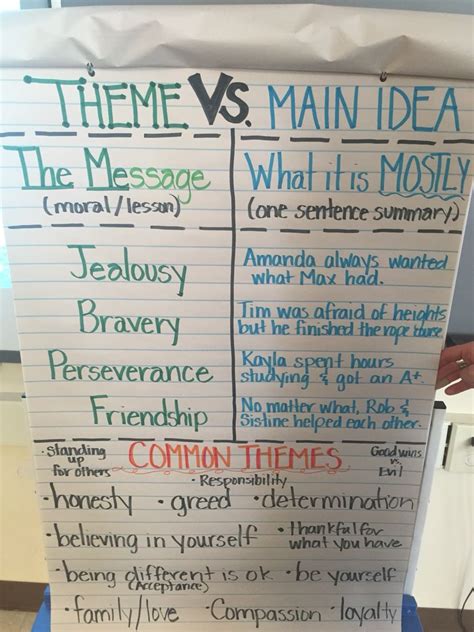 THEME VS. MAIN IDEA
The Message
(moral/lesson)
What it is MOSTLY
(one sentence summary)
Jealousy
Amanda always wanted
what Max had.
Bravery
Tim was afraid of heights
but he finished the rope course.
Perseverance
Kayla spent hours
studying & got an A+.
Friendship
No matter what, Rob &
Sistine helped each other.
COMMON THEMES
• standing
up
for others
Good wins
vs.
Evil
• Responsibility
• honesty • greed • determination
• believing in yourself
• thankful for
what you have
• being different is ok • be yourself
(Acceptance)
• family/love • Compassion • loyalty